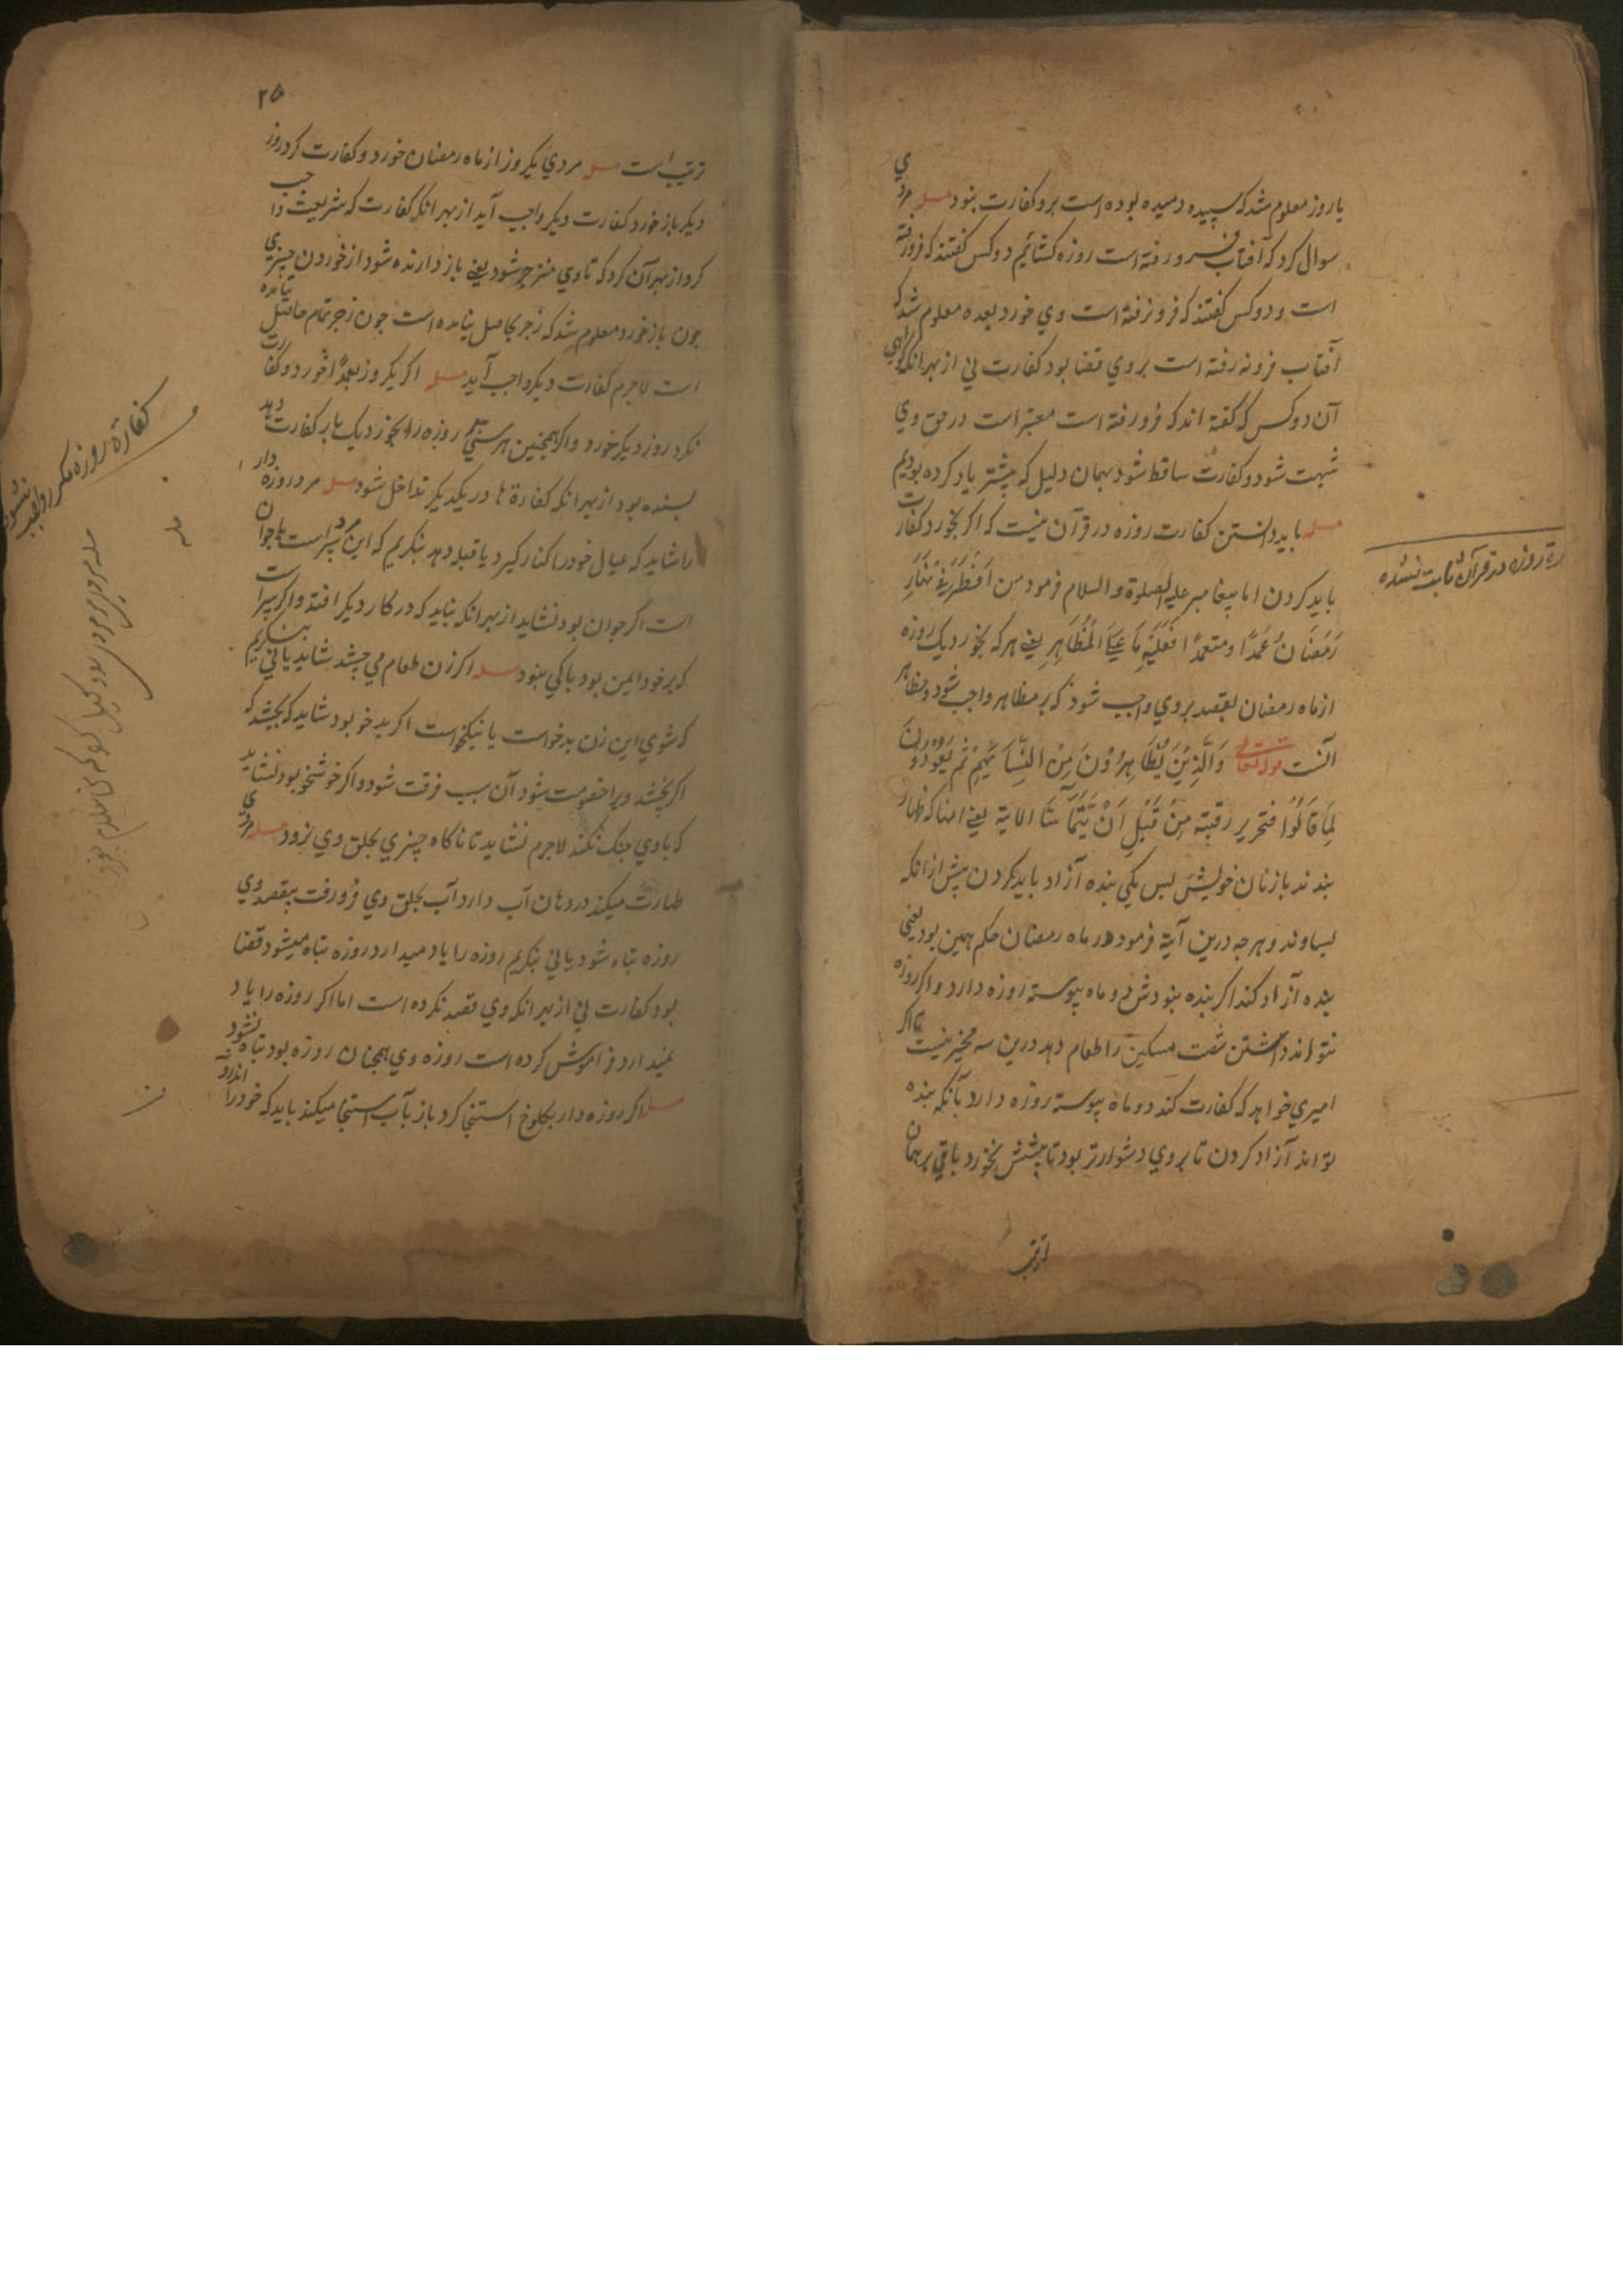 یا روز معلوم شد که سپیده دمیده بوده است برو کفارت نبود مسله مردی
سوال کرد که آفتاب فرو رفته است روزه کشائیم دو کس کفتند که فرو رفته
است و دو کس کفتند که فرو نرفته است وي خورد بعده معلوم شد که
آفتاب فرو نه رفته است بروي قضا بود کفارت ني از بهر انکه کواهي
آن دو کس که کفته اند که فرو رفته است معتبر است در حق وي
شبهت شود و کفارت ساقط شود بهمان دلیل که پیشتر یاد کرده بودیم
مسله باید دانستن کفارت روزه در قرآن نیست که اکر بخورد کفارت
باید کردن اما پیغامبر علیه الصلوة و السلام فرمود من اَفْطَرَ فِيْ نَهَارِ
رَمَضَانَ عَمَدًا و متعمدًا فَعَلَيْهِ مَا عَلَي الْمُظَاهِرِ یعني هر که بخورد یک روزه
از ماه رمضان بقصد بروي واجب شود که بر مظاهر واجب شود و مظاهر
آنست قوله تعالي وَالَّذِيْنَ يُظَاهِرُوْنَ مِنْ النِّسَآئِهِمْ ثُمَّ يَعُوْدُوْنَ
لِمَا قَالُوْا فتحرير رقبة مِنْ قَبْلِ اَنْ يَتَمَآسَّا الایة یعني انها که ظهار
بندند با زنان خویش پس یکي بنده آزاد باید کردن پیش از انکه
بساوند و هرچه درین آیة فرمود در ماه رمضان حکم همین بود یعني
بنده آزاد کند اکر بنده نبودش دو ماه پیوسته روزه دارد و اکر روزه
نتواند داشتن شصت مسکین را طعام دهد درین سه مخیر نیست تا اکر
امیري خواهد که کفارت کند دو ماه پیوسته روزه دارد با آنکه بنده
تواند آزاد کردن تا بروي دشوارتر بود تا پشتش بخورد باقي بر همان
ترتیب
رة روزه در قرآن ثابت نشده
۲۵
ترتیب است مسله مردي یکروز از ماه رمضان خورد و کفارت کرد روز
دیکر باز خورد کفارت دیکر واجب آید از بهر انکه کفارت که شریعت واجب
کرد از بهر آن کرد که تا وي منزجر شود یعني باز دارنده شود از خوردن چیزي
چون باز خورد معلوم شد که زجر حاصل نیامده است چون زجر تمام حاصل نیامده
است لاجرم کفارت دیکر واجب آید مسله اکر یکروز بعمدًا خورد و کفارت
نکرد روز دیکر خورد و اکر همچنین هر سي روزه را بخورد یک بار کفارت دهد
بسنده بود از بهر انکه کفارة ها در یکدیکر تداخل شود مسله مرد روزه دار
را شاید که عیال خود را کنار کیرد یا قبله دهد بنکریم که این مرد پیر است یا جوان
است اکر جوان بود نشاید از بهر انکه نباید که در کار دیکر افتد و اکر پیر است
که بر خود ایمن بود باکي نبود مسله اکر زن طعام مي چشد شاید یا ني بنکریم
که شوي این زن بدخو است یا نیکخو است اکر بدخو بود شاید که بچشد که
اکر نچشد ویرا خصومت شود آن سبب فرقت شود و اکر خوشخو بود نشاید
که با وي جنک نکند لاجرم نشاید تا ناکاه چیزي بحلق وي نرود مسله مردي
طهارت میکند در دهان آب دارد آب بحلق وي فرو رفت بیقصد وي
روزه تباه شود یا ني بنکریم روزه را یاد میدارد روزه تباه میشود قضا
بود کفارت ني از بهر انکه وي قصد نکرده است اما اکر روزه را یاد
نمیدارد فراموش کرده است روزه وي همچنان روزه بود تباه نشود
مسله اکر روزه دار بکلوخ استنجا کرد باز بآب استنجا میکند باید که خود را
کفارة روزه مکرر واجب نشود